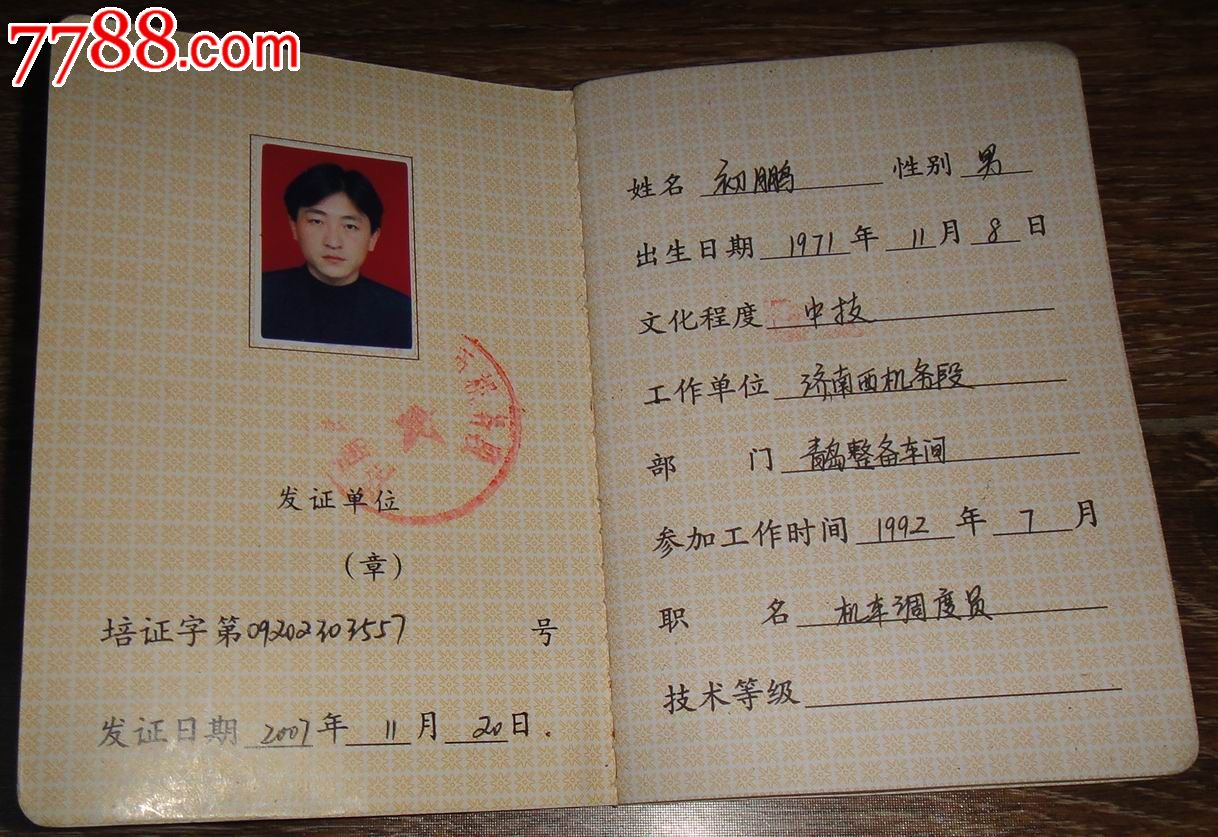 7788.com
发证单位
(章)
培证字第09202303557号
发证日期 2007年 11月 20日.
姓名 初鹏 性别 男
出生日期 1971年 11月 8日
文化程度 中技
工作单位 济南西机务段
部门 青岛整备车间
参加工作时间 1992年 7月
职名 机车调度员
技术等级